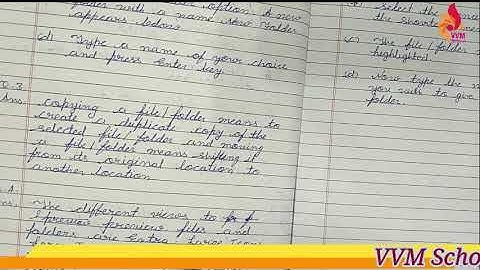 with a name New Folder
appears below.
(d) Type a name of your choice
and press Enter key.
Q.3
Ans. copying a file/folder means to
create a duplicate copy of the
selected file/folder and moving
a file/folder means shifting it
from its original location to
another location
The different views to
preview files and
folders are Extra Large
select the
the shortcut
(c) The file/folder
highlighted.
(d) Now type the
you wish to give
folder.
VVM
VVM Scho